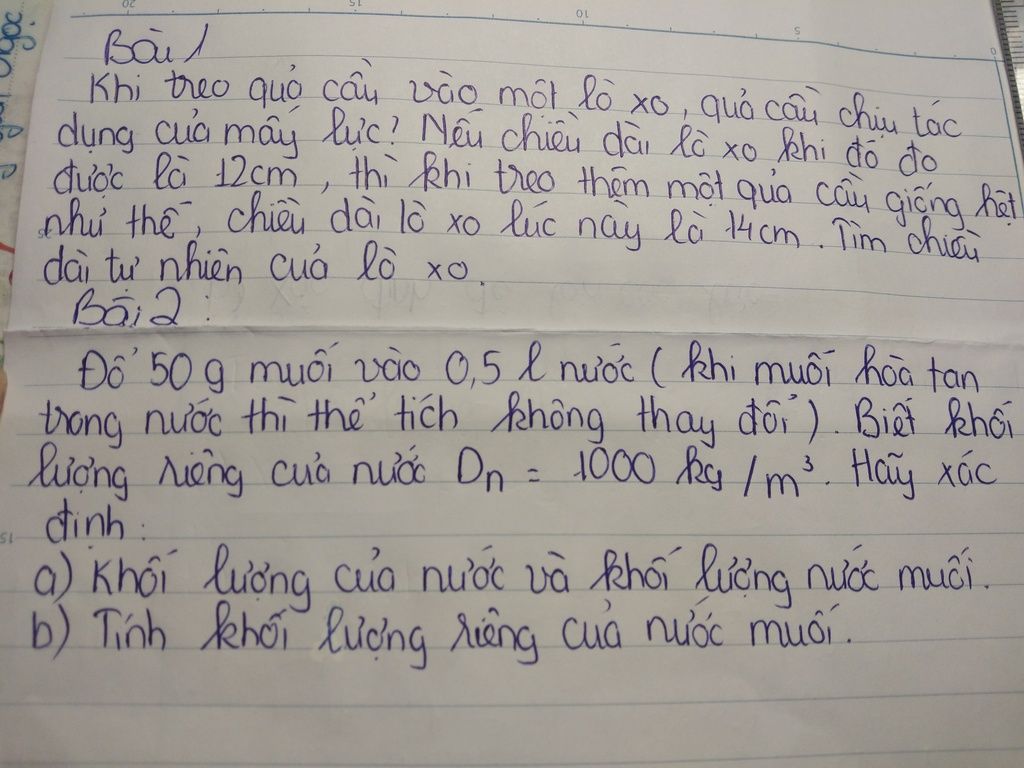 20
15
10
5
0
Bài 1
Khi treo quả cầu vào một lò xo, quả cầu chịu tác
dụng của mấy lực? Nếu chiều dài lò xo khi đó đo
được là 12cm, thì khi treo thêm một quả cầu giống hệt
như thế, chiều dài lò xo lúc này là 14cm. Tìm chiều
dài tự nhiên của lò xo.
Bài 2:
Đổ 50g muối vào 0,5 l nước (khi muối hòa tan
trong nước thì thể tích không thay đổi). Biết khối
lượng riêng của nước Dn = 1000 kg/m³. Hãy xác
định:
15
a) Khối lượng của nước và khối lượng nước muối.
b) Tính khối lượng riêng của nước muối.